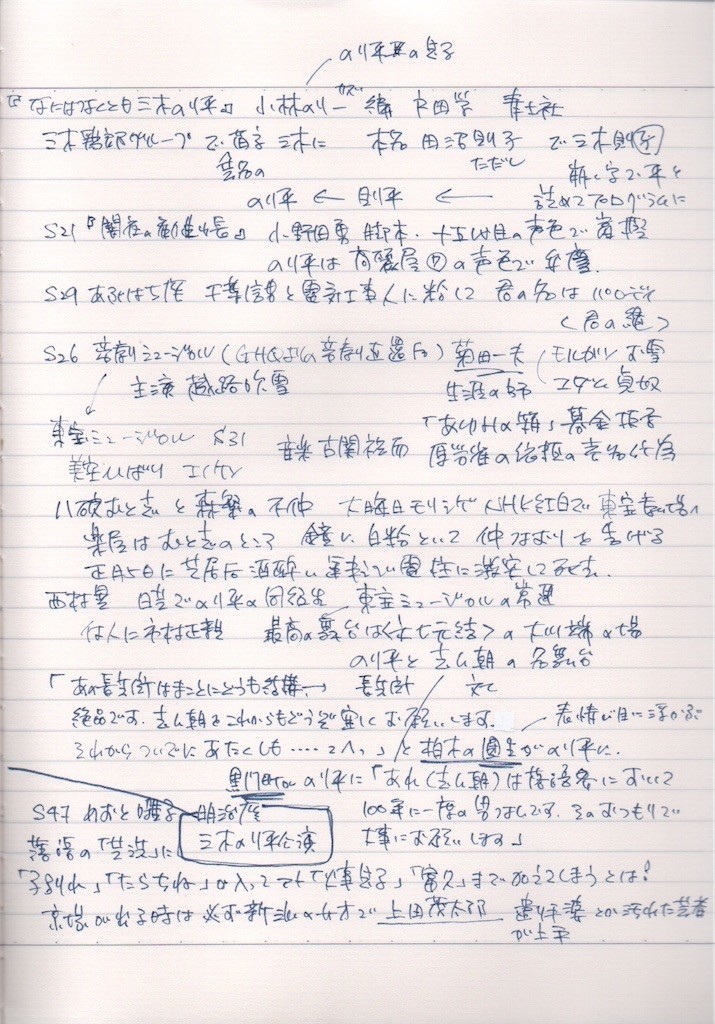 のり平の息子
『なにはなくとも三木のり平』 小林のり一 編 戸田学 青土社
三木鶏郎グループで苗字三木に 本名 田沼則子 で三木則子
芸名の ただし
のり平 ← 則平 ←
詰めてプログラムに
S21『闇市の勧進帳』 小野田勇 脚本・十五代目の声色で富樫
のり平は高麗屋⑦の声色で弁慶
S29 あぶはち座 千葉信男と電気工事人に扮して 君の名は パロディ
S26 帝劇ミュージカル(GHQよりの帝劇返還后) 菊田一夫 モルガンお雪
主演 越路吹雪 生涯の師 マダム貞奴
「ありの箱」募金拒否
東宝ミュージカル S31 音楽 古関裕而 厚労省の依頼の売名行為
美空ひばり エノケン
八波むと志と森繁の不仲 大晦日モリシゲ NHK紅白で東宝
楽屋はむと志のところ 鏡に白粉といて 仲なおりを告げる
正月5日に芝居后 酒酔い運転で電柱に激突して死去.
西村晃 日芸でのり平の同級生 東宝ミュージカルの常連
最高の舞台は<文七元結>の大川端の場
のり平と志ん朝の名舞台
「あの長兵衛はまことにどうも結構 → 長兵衛 文七
絶品です. 志ん朝をこれからもどうぞ宜しくお願いします. 表情が目に浮かぶ
それからついでにあたくしも‥‥エヘッ」と柏木の圓生がのり平に.
黒門町 のり平に「あれ(志ん朝)は落語界において
S47 めおと囃子 明治座 100年に一度の男つはんです. そのおつもりで
三木のり平公演 大事にお願いします」
落語の「芝浜」に
「子別れ」「たらちね」が入ってて「火事息子」「富久」まで加えてしまうとは!
上田茂太郎
が上手